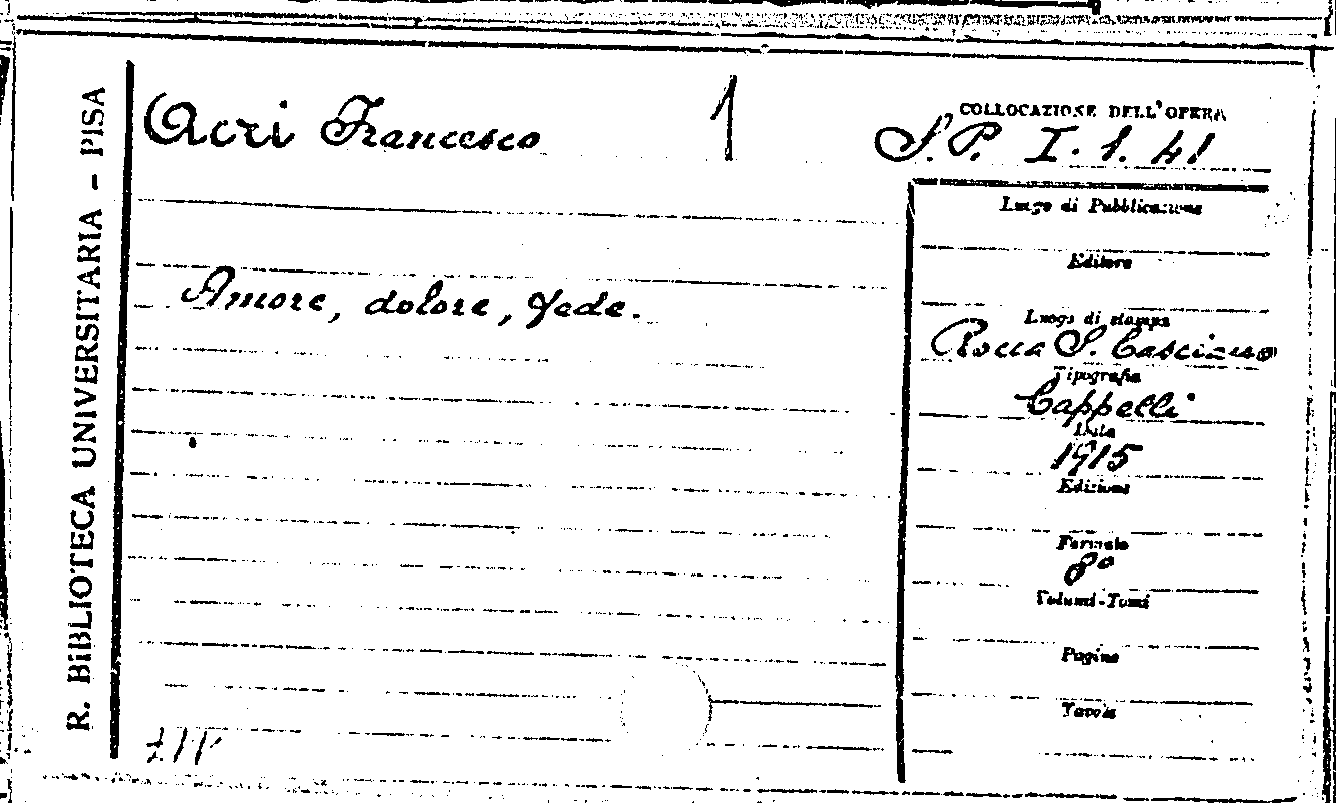 R. BIBLIOTECA UNIVERSITARIA - PISA
Acri Francesco
1
COLLOCAZIONE DELL'OPERA
S.P. I. 1. 41
Amore, dolore, fede.
Luogo di Pubblicazione
Editore
Luogo di stampa
Rocca S. Casciano
Tipografia
Cappelli
Data
1915
Edizione
Formato
8°
Volumi-Tomi
Pagine
Tavole